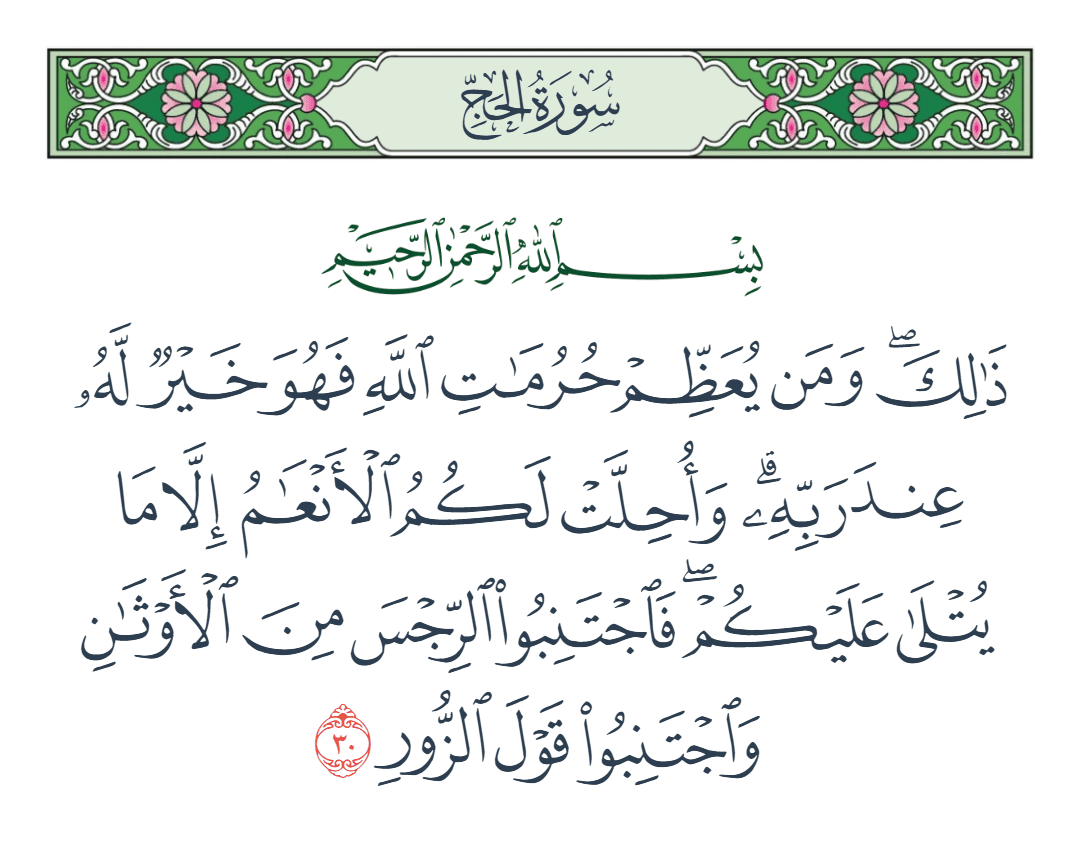 سُورَةُ الحَجِّ
بِسْمِ ٱللَّهِ ٱلرَّحْمَٰنِ ٱلرَّحِيمِ
ذَٰلِكَۖ وَمَن يُعَظِّمْ حُرُمَٰتِ ٱللَّهِ فَهُوَ خَيْرٌ لَّهُۥ
عِندَ رَبِّهِۦۗ وَأُحِلَّتْ لَكُمُ ٱلْأَنْعَٰمُ إِلَّا مَا
يُتْلَىٰ عَلَيْكُمْۖ فَٱجْتَنِبُوا۟ ٱلرِّجْسَ مِنَ ٱلْأَوْثَٰنِ
وَٱجْتَنِبُوا۟ قَوْلَ ٱلزُّورِ ٣٠